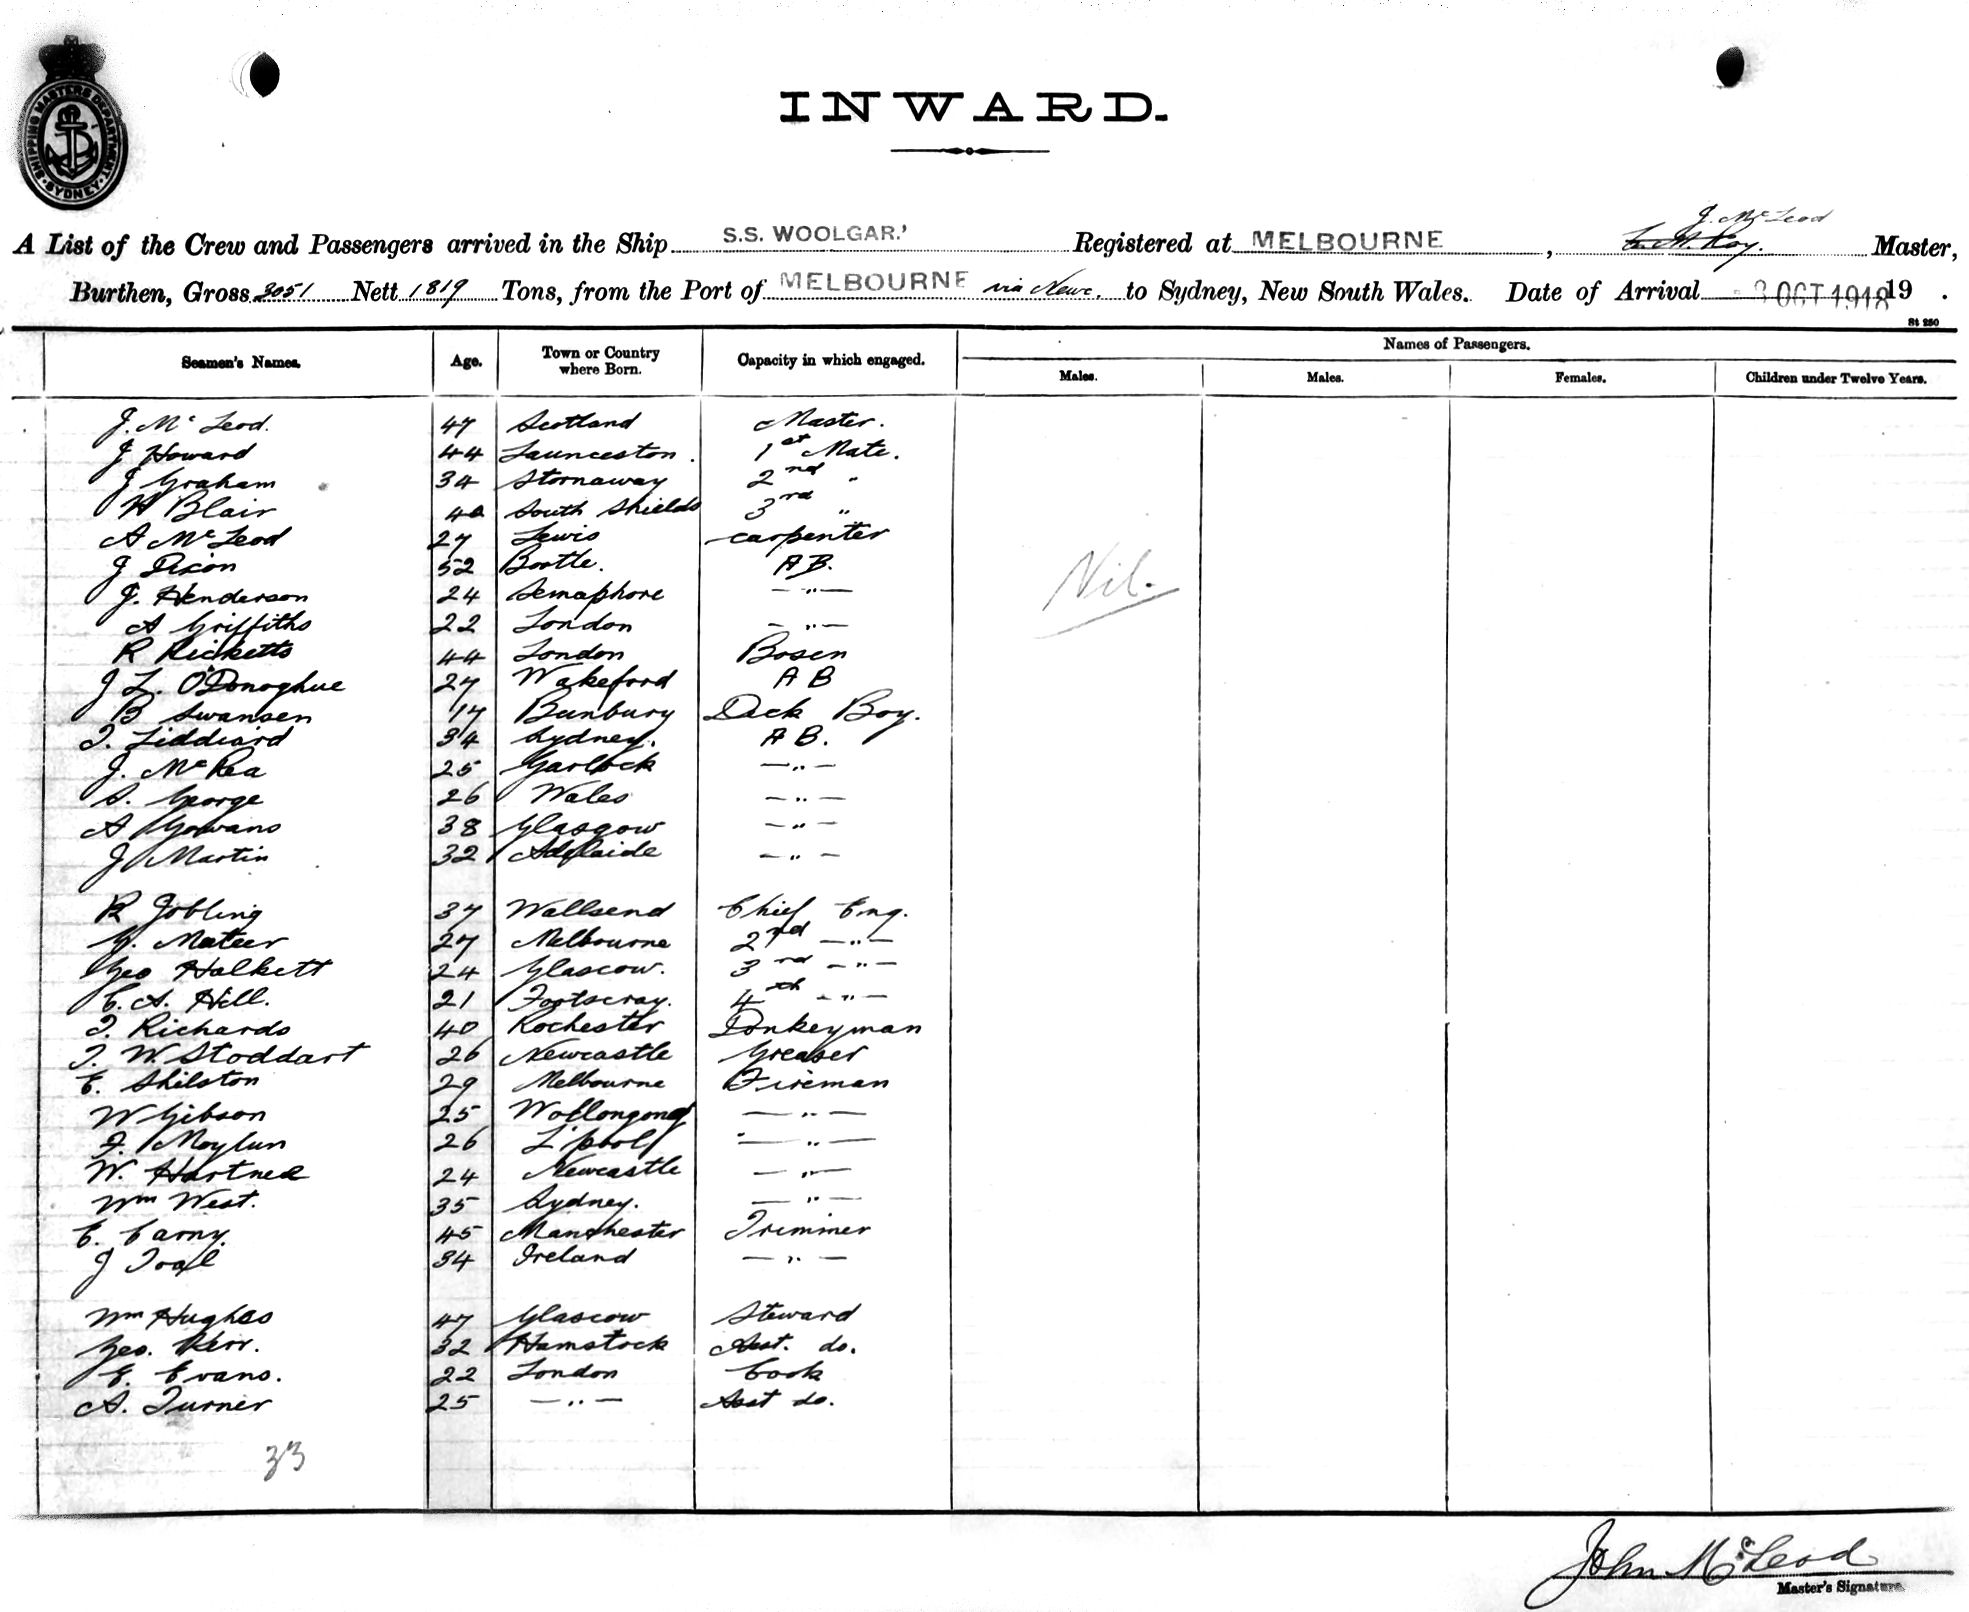 SHIPPING MASTERS DEPARTMENT
SYDNEY
INWARD.
J. McLeod
A List of the Crew and Passengers arrived in the Ship S.S. WOOLGAR.' Registered at MELBOURNE, Roy. Master,
Burthen, Gross 3051 Nett 1819 Tons, from the Port of MELBOURNE via Newc. to Sydney, New South Wales. Date of Arrival 3 OCT 1918 19 .
St 250
Seamen's Names. Age. Town or Country where Born. Capacity in which engaged. Names of Passengers.
Males. Males. Females. Children under Twelve Years.
J. McLeod. 47 Scotland Master.
J Howard 44 Launceston. 1st Mate.
J Graham 34 Stornaway 2nd "
H Blair 40 South Shields 3rd "
A McLeod 27 Lewis carpenter
J Dixon 52 Bootle. AB.
Nil.
J. Henderson 24 Semaphore — " —
A Griffiths 22 London — " —
R Ricketts 44 London Bosen
J L. O'Donoghue 27 Wakeford A B
B Swansen 17 Bunbury Deck Boy.
T. Liddiard 34 Sydney. A B.
J. McRea 25 Garlock — " —
S. George 26 Wales — " —
A Gowans 38 Glasgow — " —
J Martin 32 Adelaide — " —
R Jobling 37 Wallsend Chief Eng.
G. Mateer 27 Melbourne 2nd — " —
Geo Halkett 24 Glascow. 3rd — " —
C. A. Hill. 21 Footscray. 4th — " —
T. Richards 40 Rochester Donkeyman
T. W. Stoddart 26 Newcastle Greaser
E. Shilston 29 Melbourne Fireman
W Gibson 25 Wollongong — " —
F. Moylun 26 L'pool — " —
W. Hartnee 24 Newcastle — " —
Wm West. 35 Sydney. — " —
C. Carny. 45 Manchester Trimmer
J Toal 34 Ireland — " —
Wm Hughes 47 Glascow Steward
Geo. Kerr. 32 Hamstock Asst. do.
E. Evans. 22 London Cook
A. Turner 25 — " — Asst do.
33
John McLeod
Master's Signature.